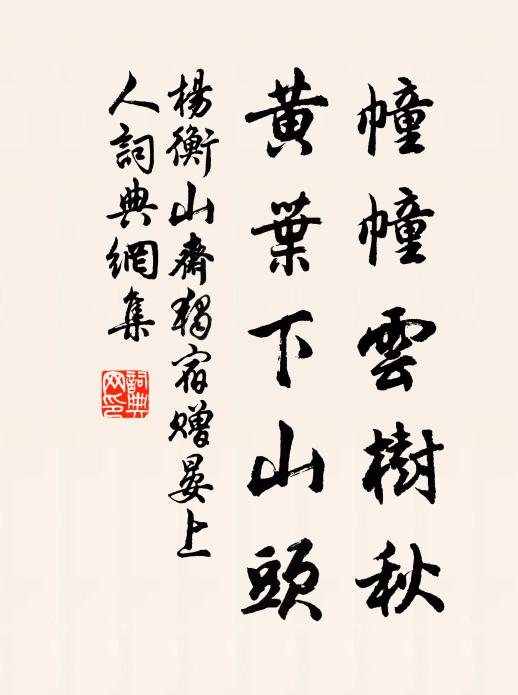 幢幢雲樹秋
黃葉下山頭
楊衡山齋獨宿贈晏上
人詞典網集
詞典
网印